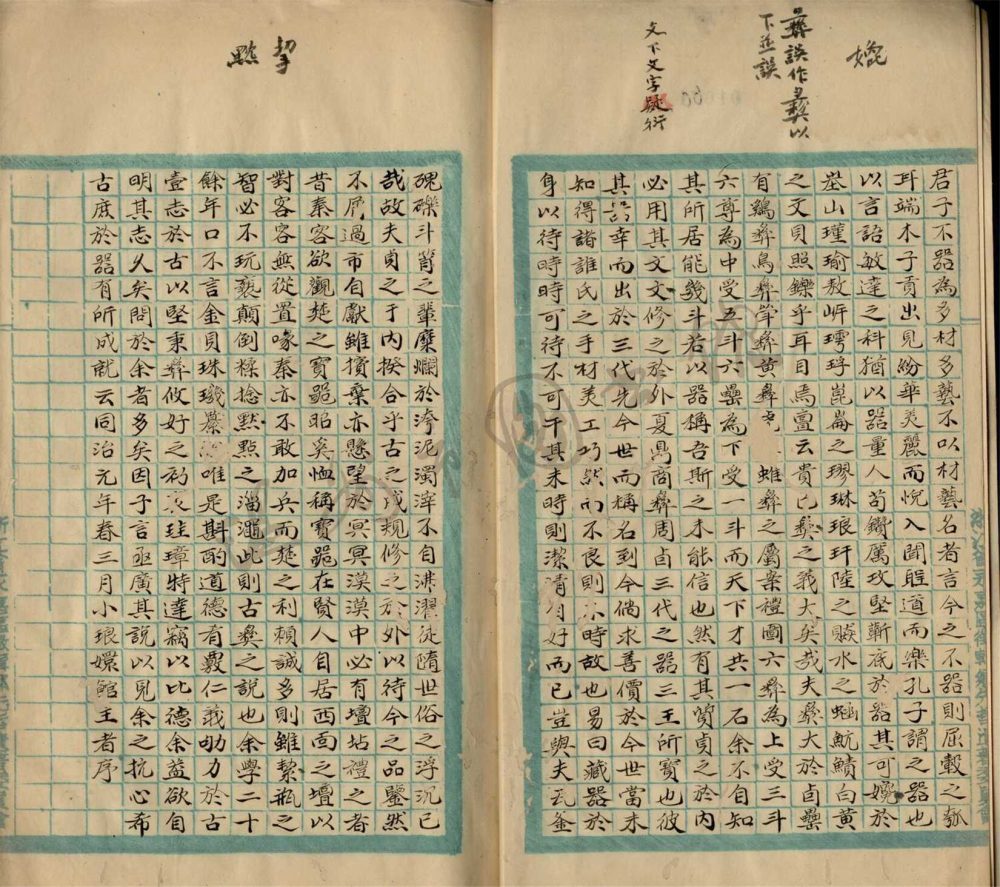 媿
彞誤作彞以
下並誤
文下文字疑衍
君子不器為多材多藝不以材藝名者言今之不器則屈轂之瓠
耳端木子貢出見紛華美麗而悅入聞聖道而樂孔子謂之器也
以言語敏達之科猶以器量人苟鑽厲攻堅蘄底於器其可媿於
峚山瑾瑜敖岍𤩽琈崑崙之璆琳琅玕陸之賝水之蝛魧鱝白黃
之文貝照鑠乎耳目焉亶云貴已彞之義大矣哉夫彞大於卣罍
有雞彞鳥彞斝彞黃彞虎蜼彞之屬案禮圖六彞為上受三斗
六尊為中受五斗六罍為下受一斗而天下才共一石余不自知
其所居能幾斗若以器稱吾斯之未能信也然有其質貞之於內
必用其文文修之於外夏鼎商彞周卣三代之器三王所寶也彼
其器幸而出於三代先今世而稱名到今倘求善價於今世當未
知得諸誰氏之手材美工巧然而不良則不時故也易曰藏器於
身以待時時可待不可干其未時則潔清自好而已豈與夫瓦釜
挈
黙
磈礫斗筲之輩糜爛於洿泥濁滓不自沸濯從隋世俗之浮沉已
哉故夫貞之于內揆合乎古之成規修之於外以待今之品鑒然
不屑過市自獻雖擯棄亦懸望於冥冥漠漠中必有壇坫禮之者
昔秦客欲觀楚之寶器昭奚恤稱寶器在賢人自居西面之壇以
對客客無從置喙秦亦不敢加兵而楚之利賴誠多則雖挈瓶之
智必不玩褻顛倒糅捻黙點之淄澠此則古彞之說也余學二十
餘年口不言金貝珠璣纂唯是斟酌道德有斁仁義勖力於古
壹志於古以堅秉彞攸好之初玄珪璋特達竊以比德余益欲自
明其志久矣問於余者多矣因子言亟廣其說以見余之抗心希
古庶於器有所成就云同治元年春三月小琅嬛館主者序